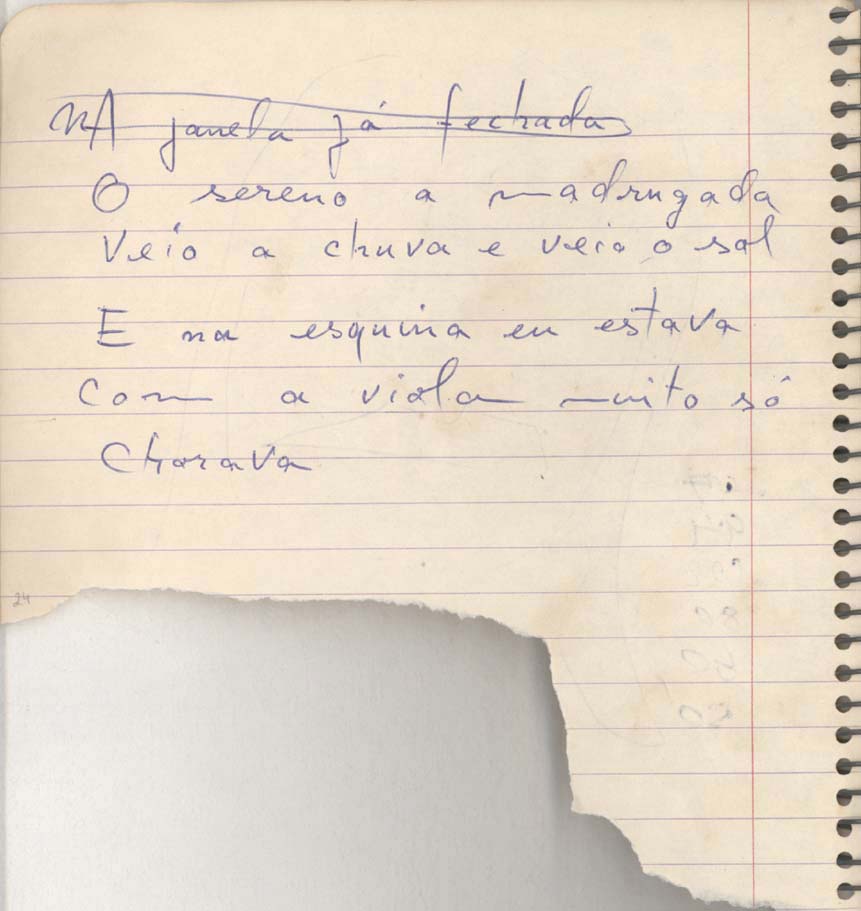 NA janela já fechada
O sereno a madrugada
Veio a chuva e veio o sol
E na esquina eu estava
Com a viola muito só
Chorava
24